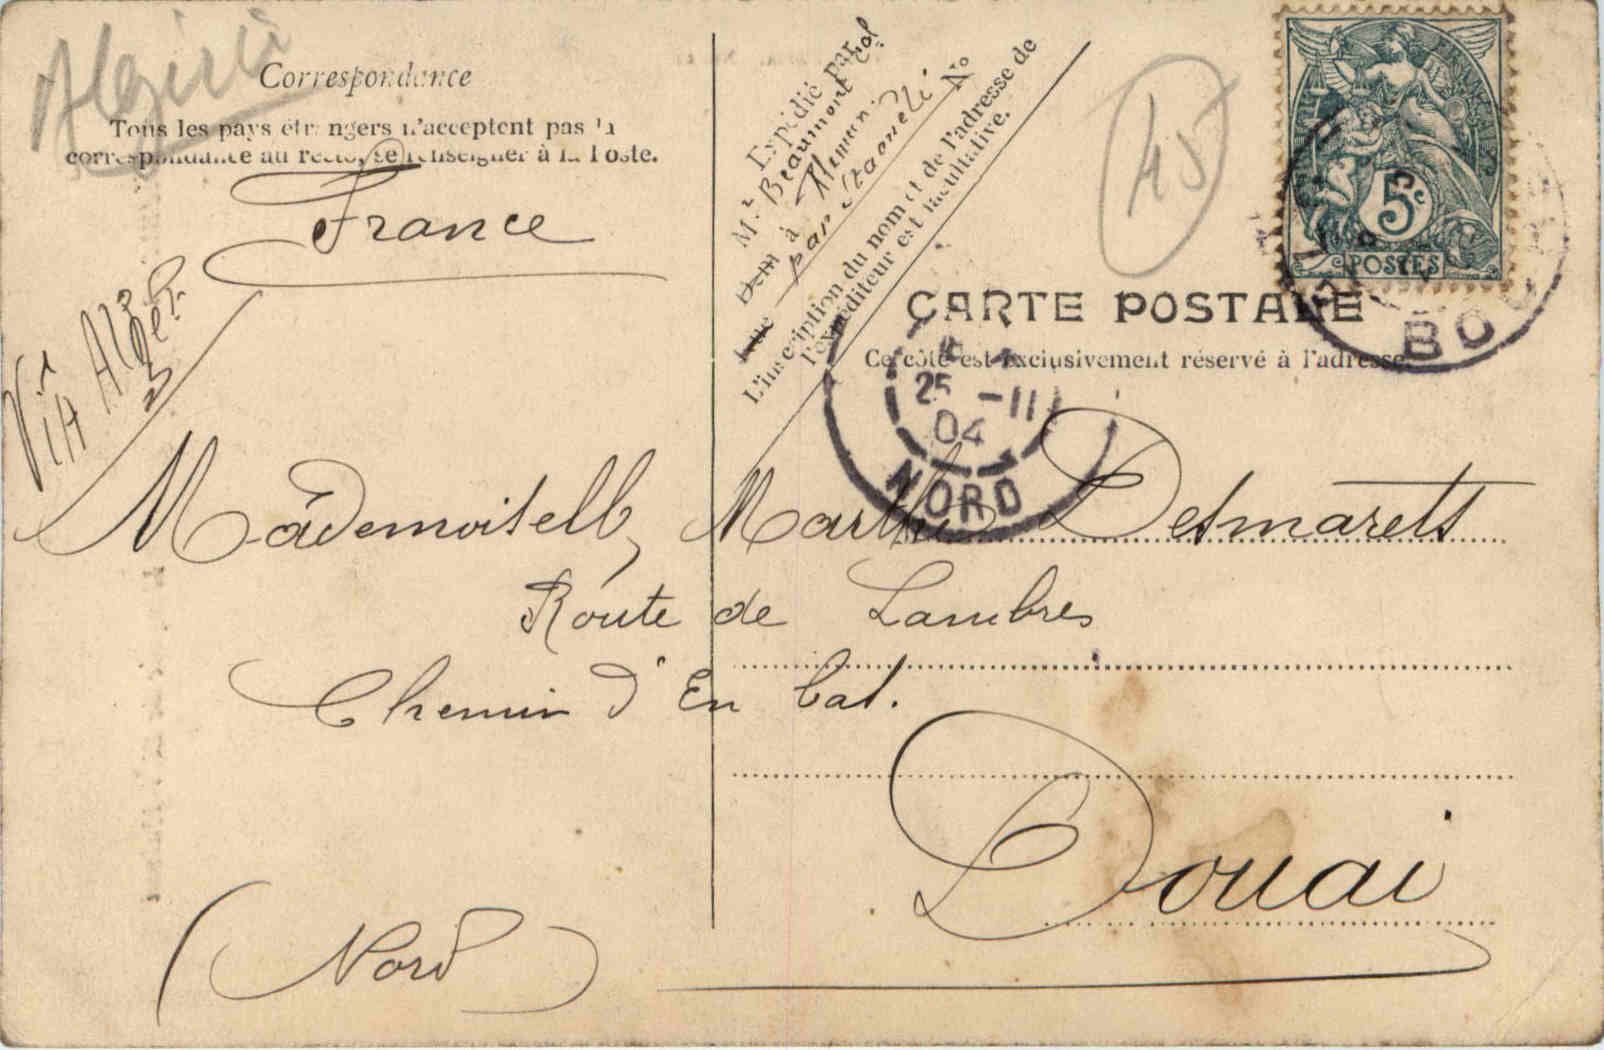 Algérie
Correspondance
Tous les pays étrangers n'acceptent pas la
correspondance au recto, se renseigner à la Poste.
France
Via Alger
Expédié par
Mr Beaumont col
à
par Staouéli No
L'inscription du nom et de l'adresse de
l'expéditeur est facultative.
45
5c
POSTES
CARTE POSTALE
Ce côté est exclusivement réservé à l'adresse.
BOU
25 -11
04
NORD
Mademoiselle Marthe Desmarets
Route de Lambres
Chemin d'En bal.
Douai
(Nord)